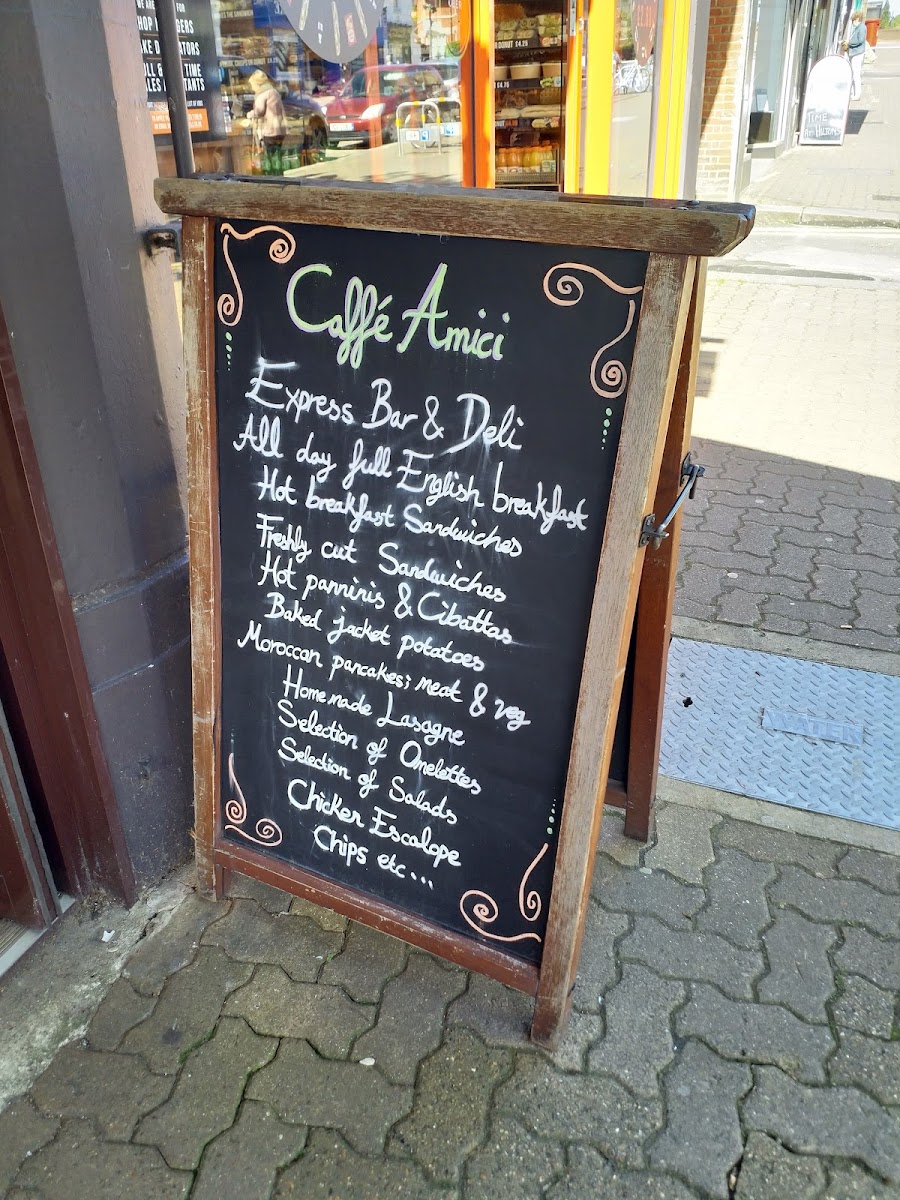 WE ARE
FOR
HOP
GERS
AKE D
ATORS
TIME
Caffé Amici
Express Bar & Deli
All day full English breakfast
Hot breakfast Sandwiches
Freshly cut Sandwiches
Hot panninis & Cibattas
Baked jacket potatoes
Moroccan pancakes; meat & veg
Home made Lasagne
Selection of Omelettes
Selection of Salads
Chicken Escalope
Chips etc...
WATER